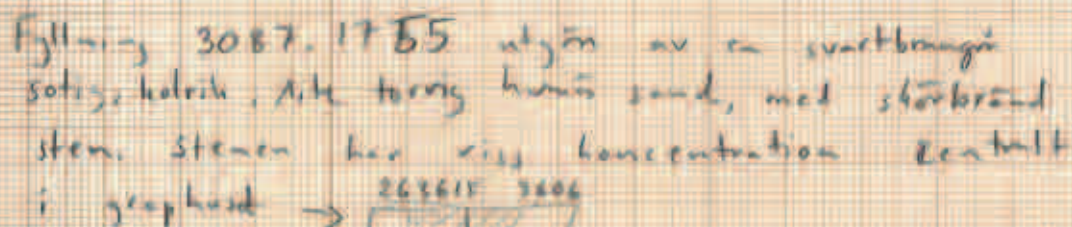 Fyllning 3087. 1755 utgörs av en svartbrungrå
sotig, kolrik, lite torvig humös sand, med skörbränd
sten. Stenen har viss koncentration centralt
i grophuset →